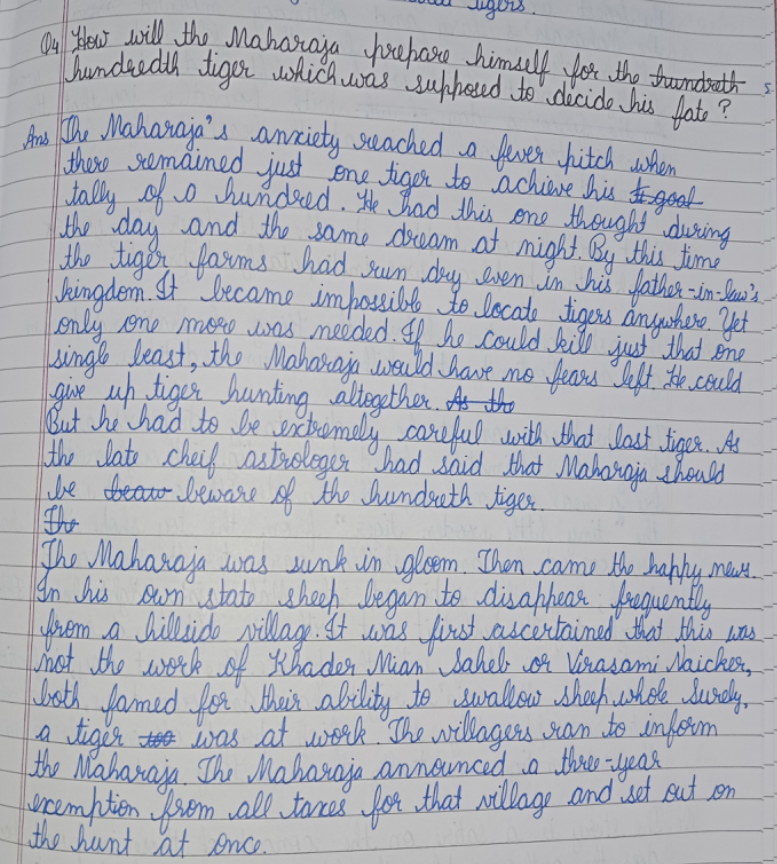 tigers.
Q4 How will the Maharaja prepare himself for the hundreth
hundredth tiger which was supposed to decide his fate?
Ans The Maharaja's anxiety reached a fever pitch when
there remained just one tiger to achieve his goal
tally of a hundred. He had this one thought during
the day and the same dream at night. By this time
the tiger farms had run dry even in his father-in-law's
kingdom. It became impossible to locate tigers anywhere. Yet
only one more was needed. If he could kill just that one
single beast, the Maharaja would have no fears left. He could
give up tiger hunting altogether. As the
But he had to be extremely careful with that last tiger. As
the late cheif astrologer had said that Maharaja should
be beaw beware of the hundreth tiger.
The
The Maharaja was sunk in gloom. Then came the happy news.
In his own state sheep began to disappear frequently
from a hillside village. It was first ascertained that this was
not the work of Khader Mian Saheb or Virasami Naicker,
both famed for their ability to swallow sheep whole. Surely,
a tiger was at work. The villagers ran to inform
the Maharaja. The Maharaja announced a three-year
exemption from all taxes for that village and set out on
the hunt at once.